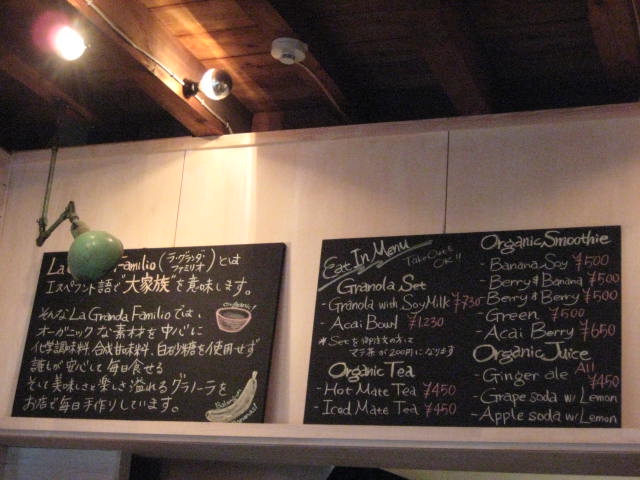 La Familio(ラ・グランダ ファミリオ)とは
エスペラント語で"大家族"を意味します。
そんなLa Granda Familioでは、
オーガニックな素材を中心に
化学調味料、合成甘味料、白砂糖を使用せず
誰もが安心して毎日食せる
そして美味しさと楽しさ溢れるグラノーラを
お店で毎日手作りしています。
organic!
Eat In Menu
Take Outも OK!!
Granola Set
- Granola with Soy Milk ¥730
- Acai Bowl ¥1230
* Setを御注文の方は
マテ茶が200円になります
Organic Tea
- Hot Mate Tea ¥450
- Iced Mate Tea ¥450
Organic Smoothie
- Banana Soy ¥500
- Berry & Banana ¥500
- Berry & Berry ¥500
- Green ¥500
- Acai Berry ¥650
Organic Juice
- Ginger ale All ¥450
- Grape soda w/ Lemon
- Apple soda w/ Lemon